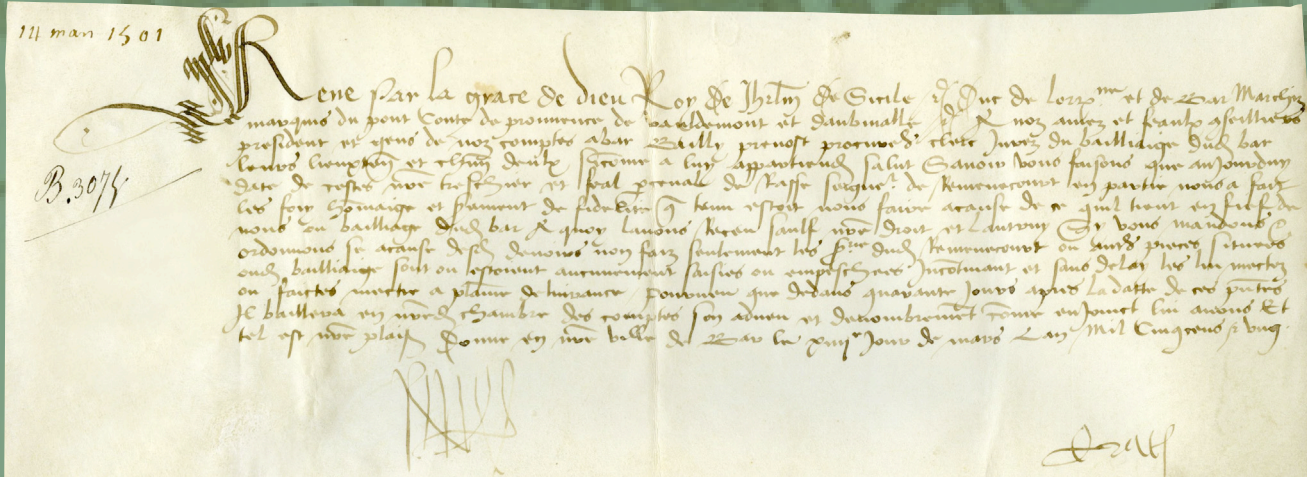 14 mars 1501
Rene par la grace de dieu Roy de Jhrlm de Sicile &c Duc de Lorrne et de Bar Marchis
marquis du pont Conte de prouuence de vauldemont et daubmalle &c A noz amez et feaulx conseilliers
president et gens de noz comptes a bar Bailly preuost procureur clerc Jurez du bailliaige dudit bar
leurs lieuxten et chun deulx si come a luy appartiendra salut Sauoir vous faisons que aujourduy
B.3075
date de cestes nre treschier et feal de Rasse seigneur de Remenecourt en partie nous a fait
les foy homaige et serment de fidelite que tenu estoit nous faire acause de ce quil tient en fief de
nous ou bailliage dudit bar A quoy lauons Receu saulf nre droit et lautruy Sy vous mandons
ordonnons se acause desd deuoirs non faiz seulement les dudit Remenecourt ou autres pieces situees
oudit bailliaige sont ou estoient aucunement saisies ou empeschees Incontinant et sans delay les luy mectez
ou faictes mectre a plaine deliurance pourueu que dedans quarante Jours apres la datte de ces pntes
Il baillera en nred chambre des comptes son adueu et denombrement come enjoinct luy auons Et
tel est nre plaisir Donne en nre ville de Bar le xiiije Jour de mars Lan Mil Cinqcens & vng